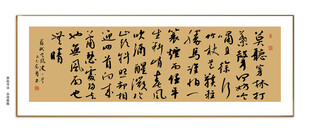 莫聽穿林打
葉聲何妨吟
嘯且徐行
竹杖芒鞋輕
勝馬誰怕一
蓑煙雨任平
生料峭春風
吹酒醒微冷
山頭斜照却
相迎回首向來
蕭瑟處歸去
也無風雨也
無晴